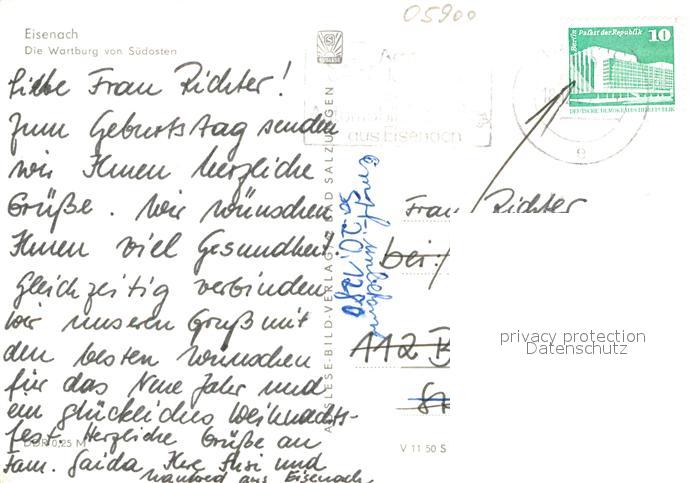 05900
Eisenach
Die Wartburg von Südosten
Liebe Frau Richter!
zum Geburtstag senden
wir Ihnen herzliche
Grüße. Wir wünschen
Ihnen viel Gesundheit
Gleichzeitig verbinden
wir unseren Gruß mit
den besten Wünschen
für das Neue Jahr und
ein glückliches Weihnachts-
fest. Herzliche Grüße an
Fam. Gaida Ihre Susi und
Manfred aus Eisenach
DDR 0,25 M
AUSLESE-BILD-VERLAG BAD SALZUNGEN
aus Eisenach
Berlin Palast der Republik
10
DEUTSCHE DEMOKRATISCHE REPUBLIK
e
Frau Richter
bei:
112
20.12.80
V 11 50 S
privacy protection
Datenschutz